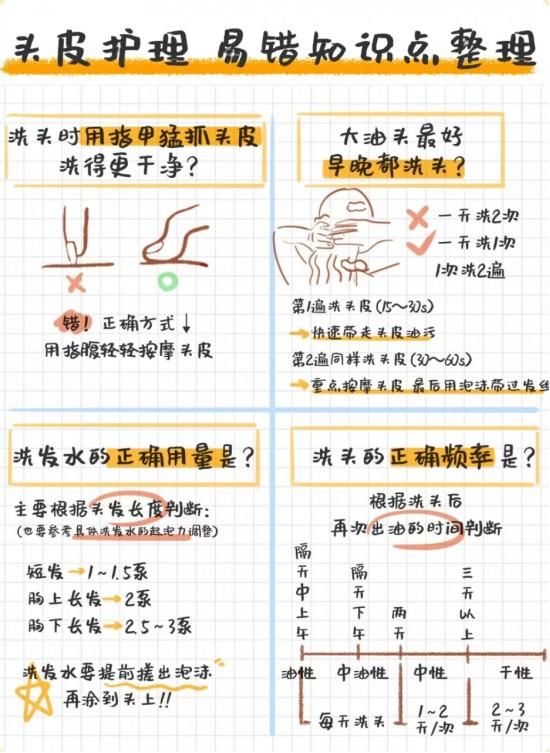 头皮护理 易错知识点整理
洗头时用指甲猛抓头皮
洗得更干净?
错!正确方式↓
用指腹轻轻按摩头皮
大油头最好
早晚都洗头?
一天洗2次
一天洗1次
1次洗2遍
第1遍洗头皮(15~30s)
→快速带走头皮油污
第2遍同样洗头皮(30~60s)
→重点按摩头皮 最后用泡沫带过发丝
洗发水的正确用量是?
主要根据头发长度判断:
(也要参考具体洗发水的起泡力调整)
短发→1~1.5泵
胸上长发→2泵
胸下长发→2.5~3泵
洗发水要提前搓出泡沫
再涂到头上!!
洗头的正确频率是?
根据洗头后
再次出油的时间判断
隔天中上午
隔天下午
两天
三天以上
油性 中油性 中性 干性
每天洗头
1~2
天/次
2~3
天/次